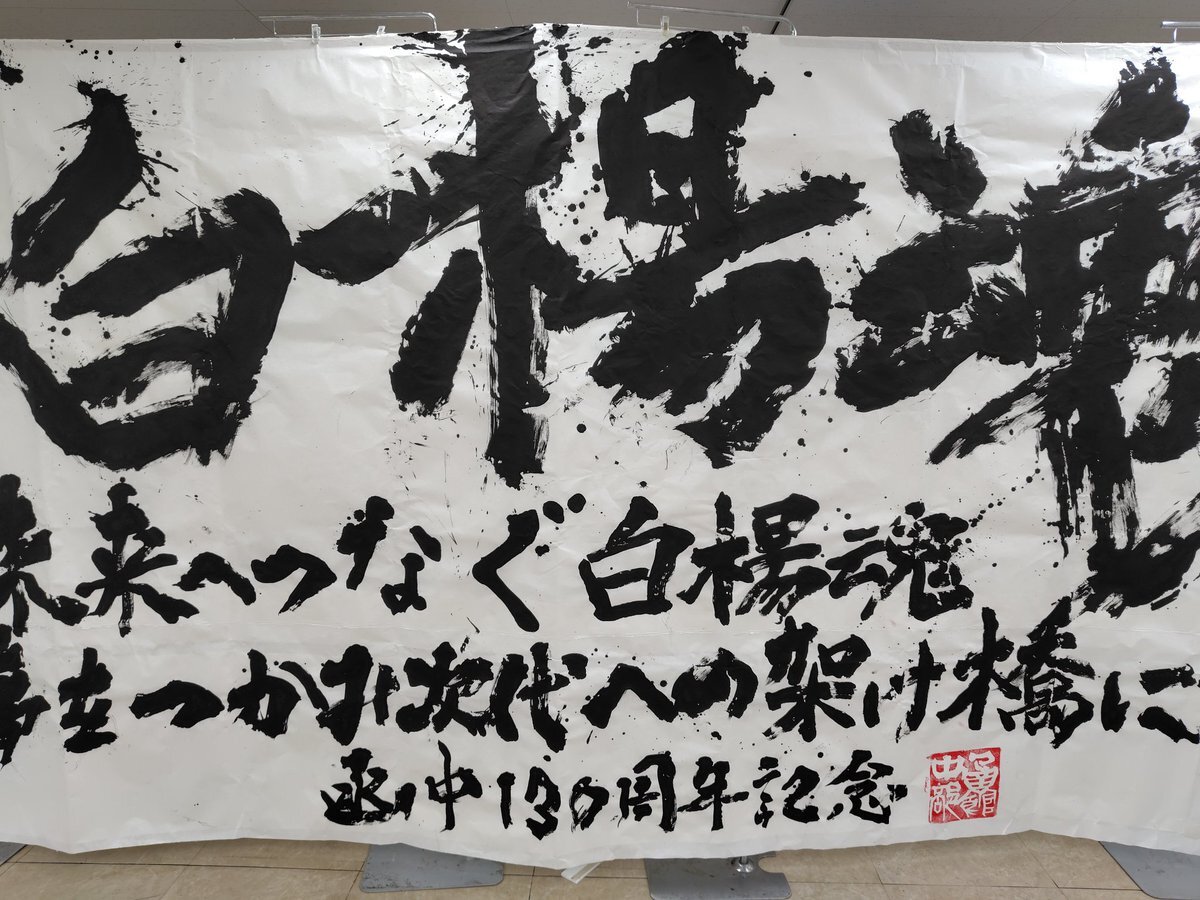 白楊魂
未来へつなぐ白楊魂
をつかみ次代への架け橋に
函中130周年記念
函館中部